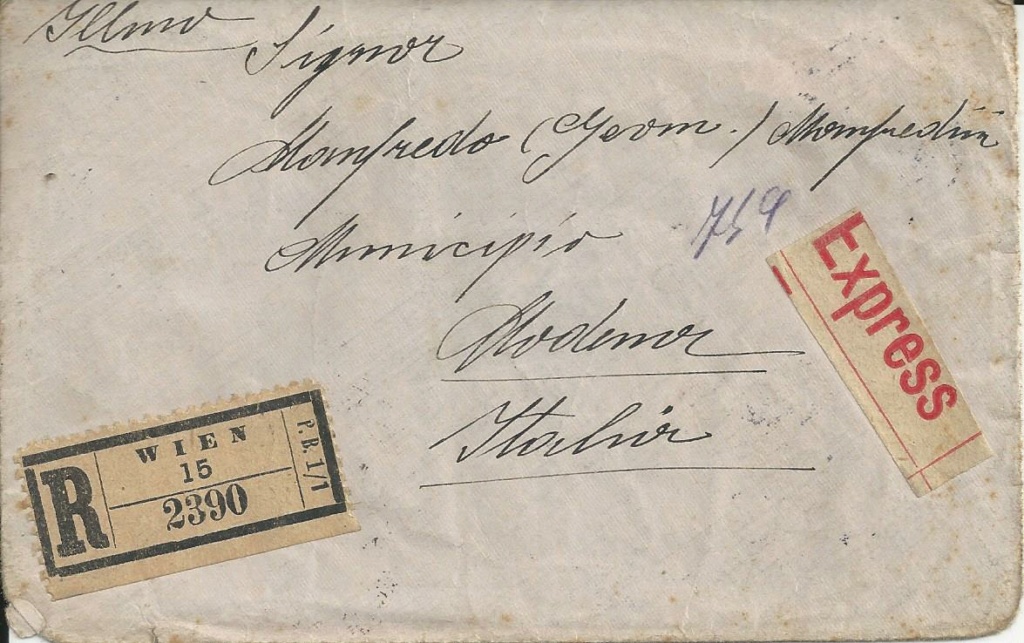 Illmo Signor
Manfredo (Geom.) Manfredini
Municipio
759
Modena
Italia
Express
R
WIEN
15
2390
P.B.I/1